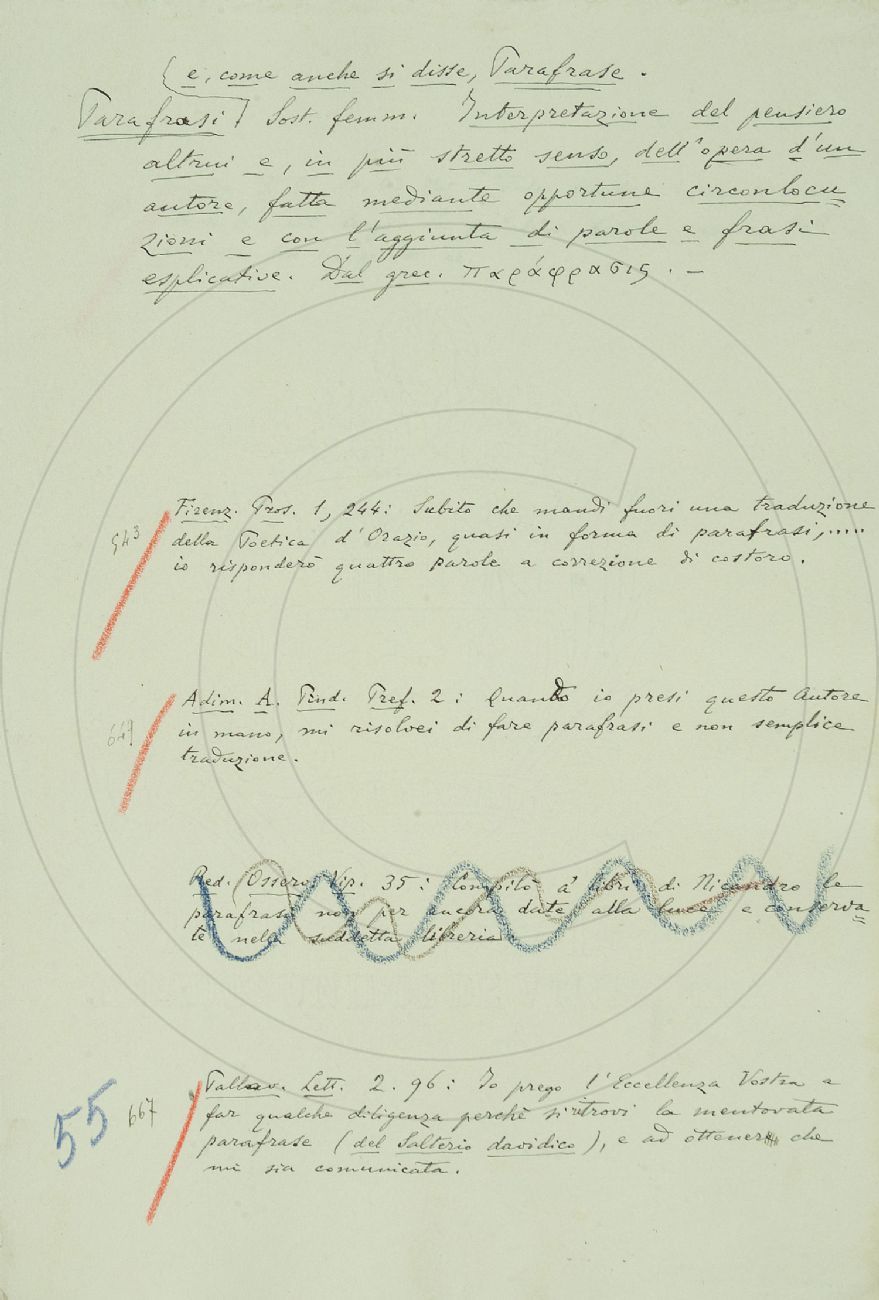 e, come anche si disse, Parafrase.
Parafrasi Sost. femm. Interpretazione del pensiero
altrui e, in più stretto senso, dell'opera d'un
autore, fatta mediante opportune circonlocu
zioni e con l'aggiunta di parole e frasi
esplicative. Dal grec. παράφρασις. —
Firenz. Pros. 1, 244: Subito che mandi fuori una traduzione
543
della Poetica d'Orazio, quasi in forma di parafrasi,.....
io risponderò quattro parole a correzione di costoro.
Adim. A. Pind. Pref. 2: Quando io presi questo Autore
649
in mano, mi risolvei di fare parafrasi e non semplice
traduzione.
Red. Osserv. Vip. 35: Compilò a' libri di Nicandro le
parafrasi non per ancora date alla luce e conserva
te nella suddetta libreria
Pallav. Lett. 2. 96: Io prego l'Eccellenza Vostra a
55 667
far qualche diligenza perchè si ritrovi la mentovata
parafrase (del Salterio davidico), e ad ottenere che
mi sia comunicata.